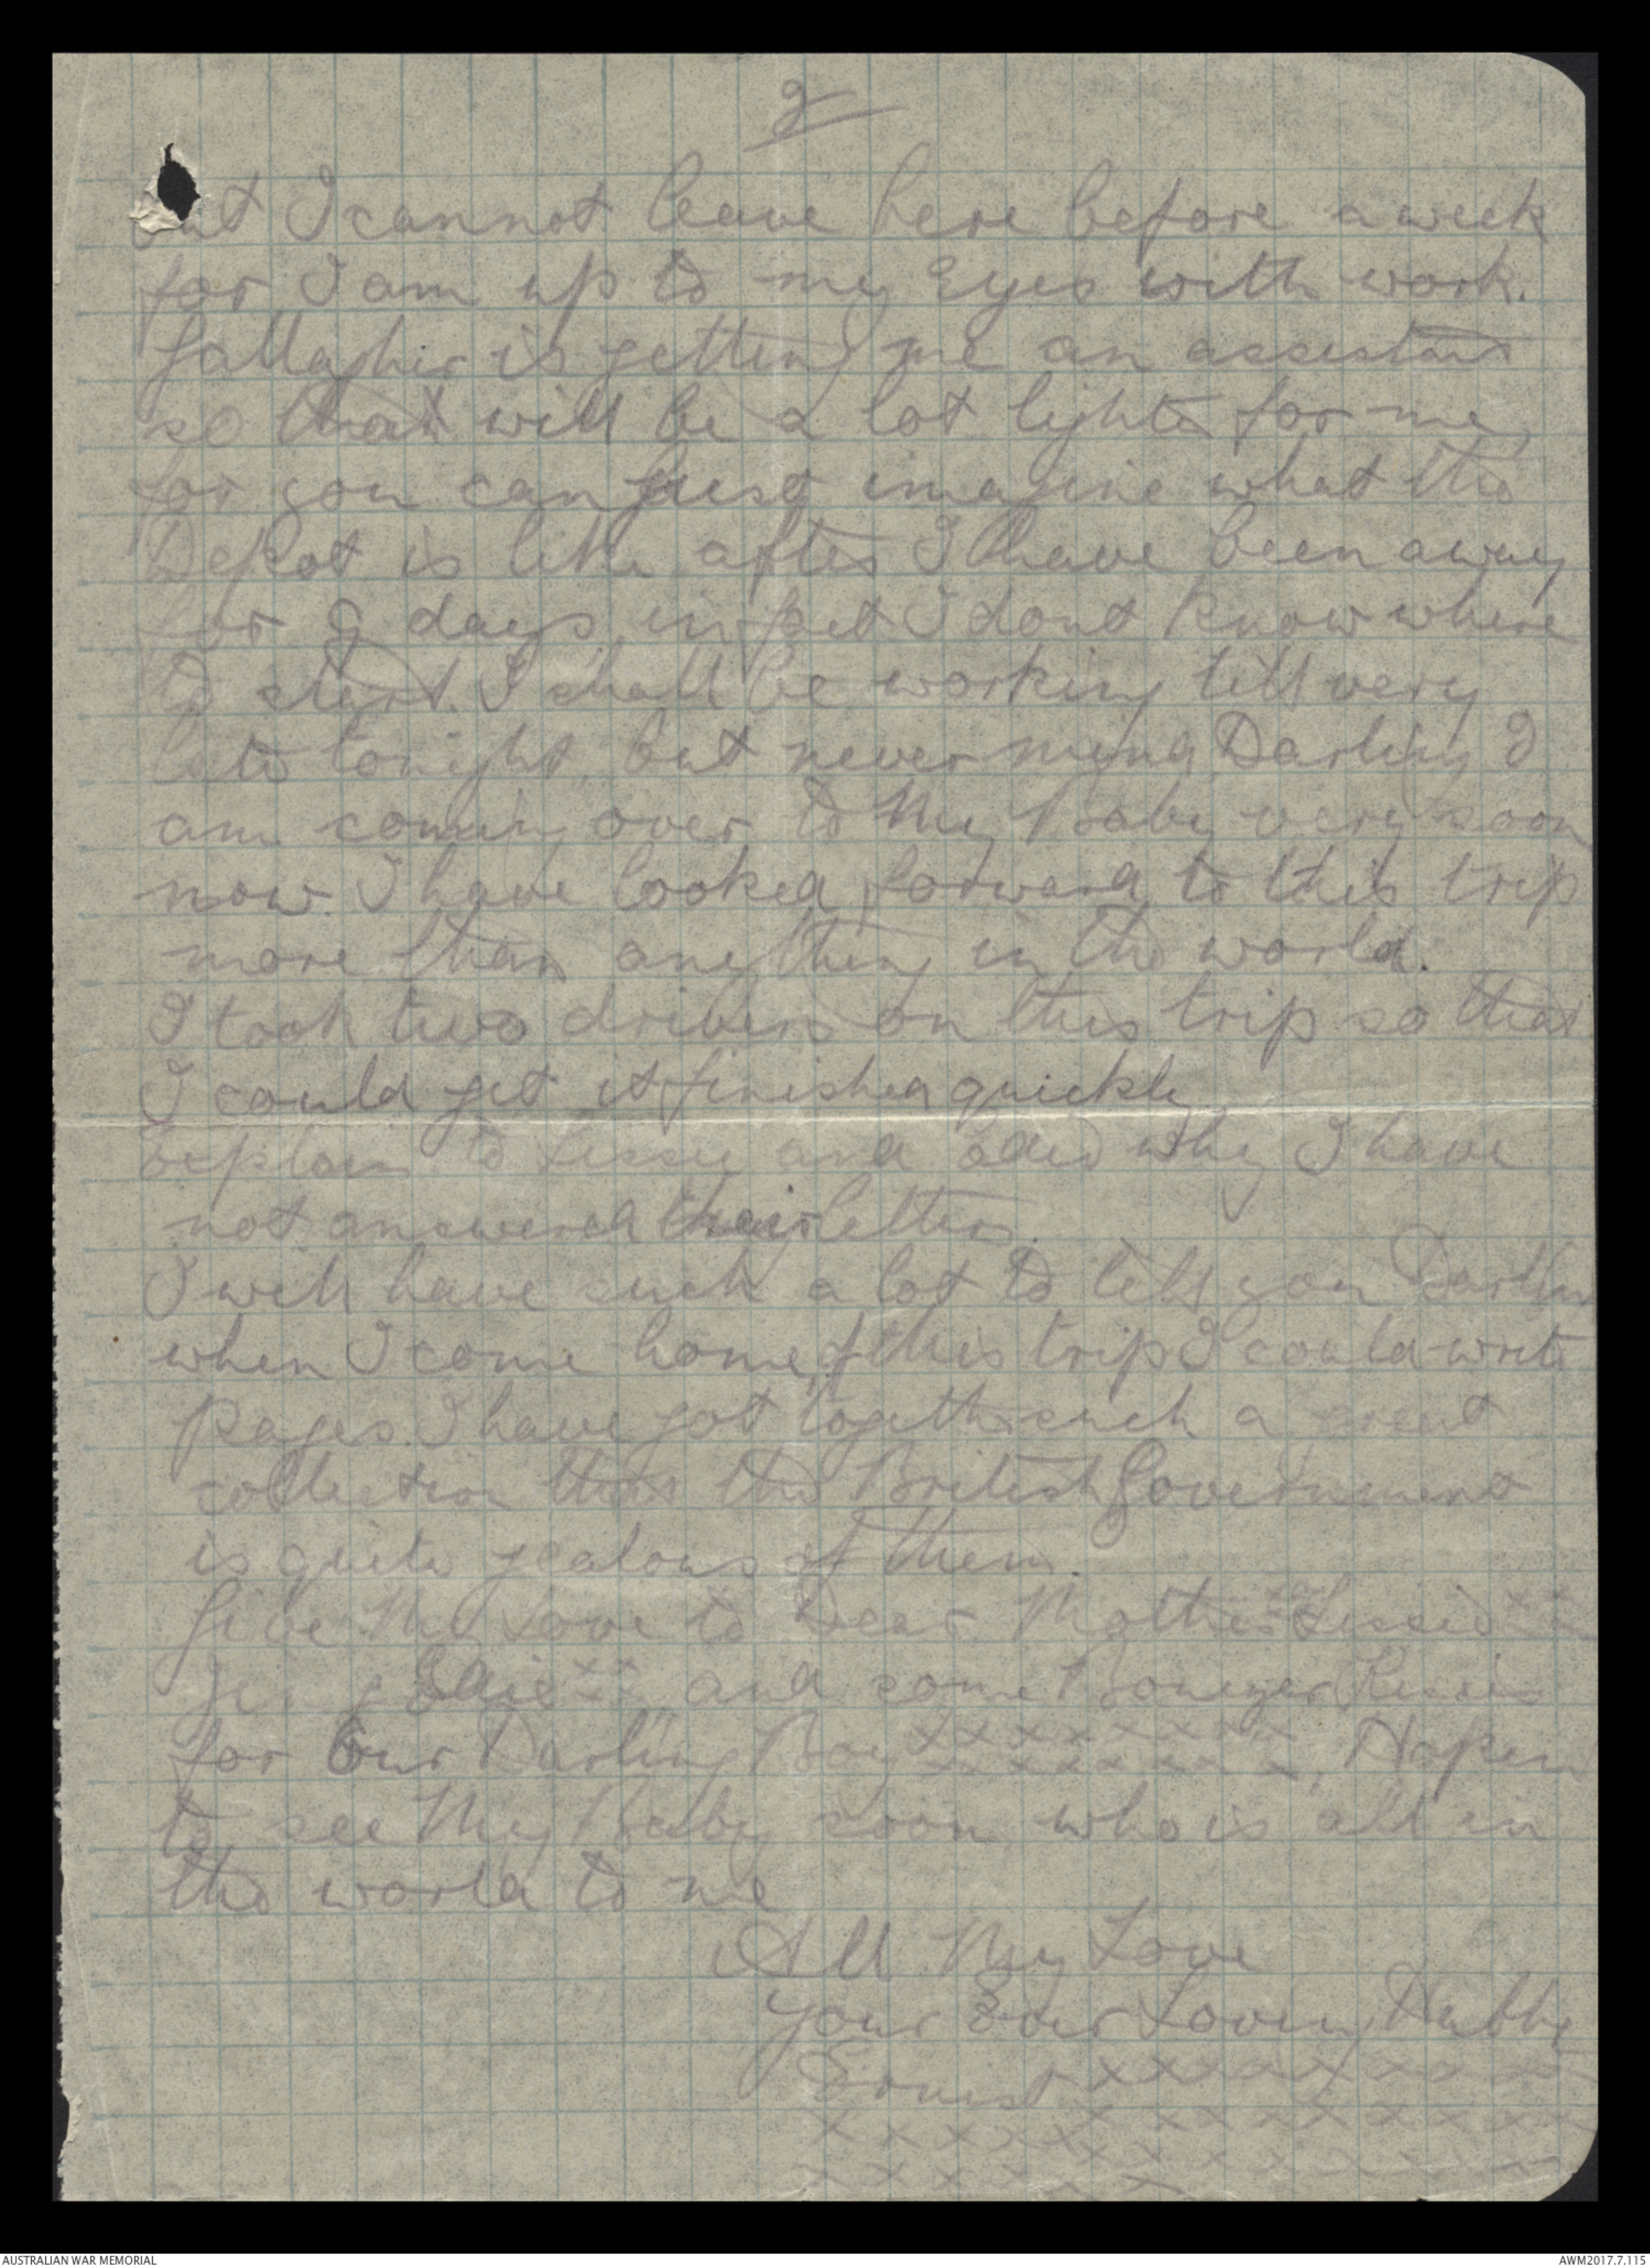 2
but I cannot leave here before a week
for I am up to my Eyes with work.
Gallagher is getting me an assistant
so that will be a lot lighter for me,
for you can just imagine what the
Depot is like after I have been away
for 9 days, in fact I dont know where
to start. I shall be working till very
late tonight, but never mind Darling I
am coming over to My Baby very soon
now. I have looked forward to this trip
more than anything in the world.
I took two drivers on this trip so that
I could get it finished quickly
Explain to Lissie and Edie why I have
not answered their letters.
I will have such a lot to tell you Darling
when I come home, of this trip I could write
pages. I have got together such a great
collection that the British Government
is quite jealous of them.
Give My Love to Dear Mother xx Lissie xx
Jen, Edie xx and some Kisses
for Our Darling Boy xxxxxxxxx xxxxxxxxx, Hopen
to see My Baby soon who is all in
the world to me
All My Love
Your Ever Loving Hubby
Ernest xxxxxxxxx
xxxxxxxxxxxxx
xxxxxxxxxxxx
AUSTRALIAN WAR MEMORIAL
AWM2017.7.115